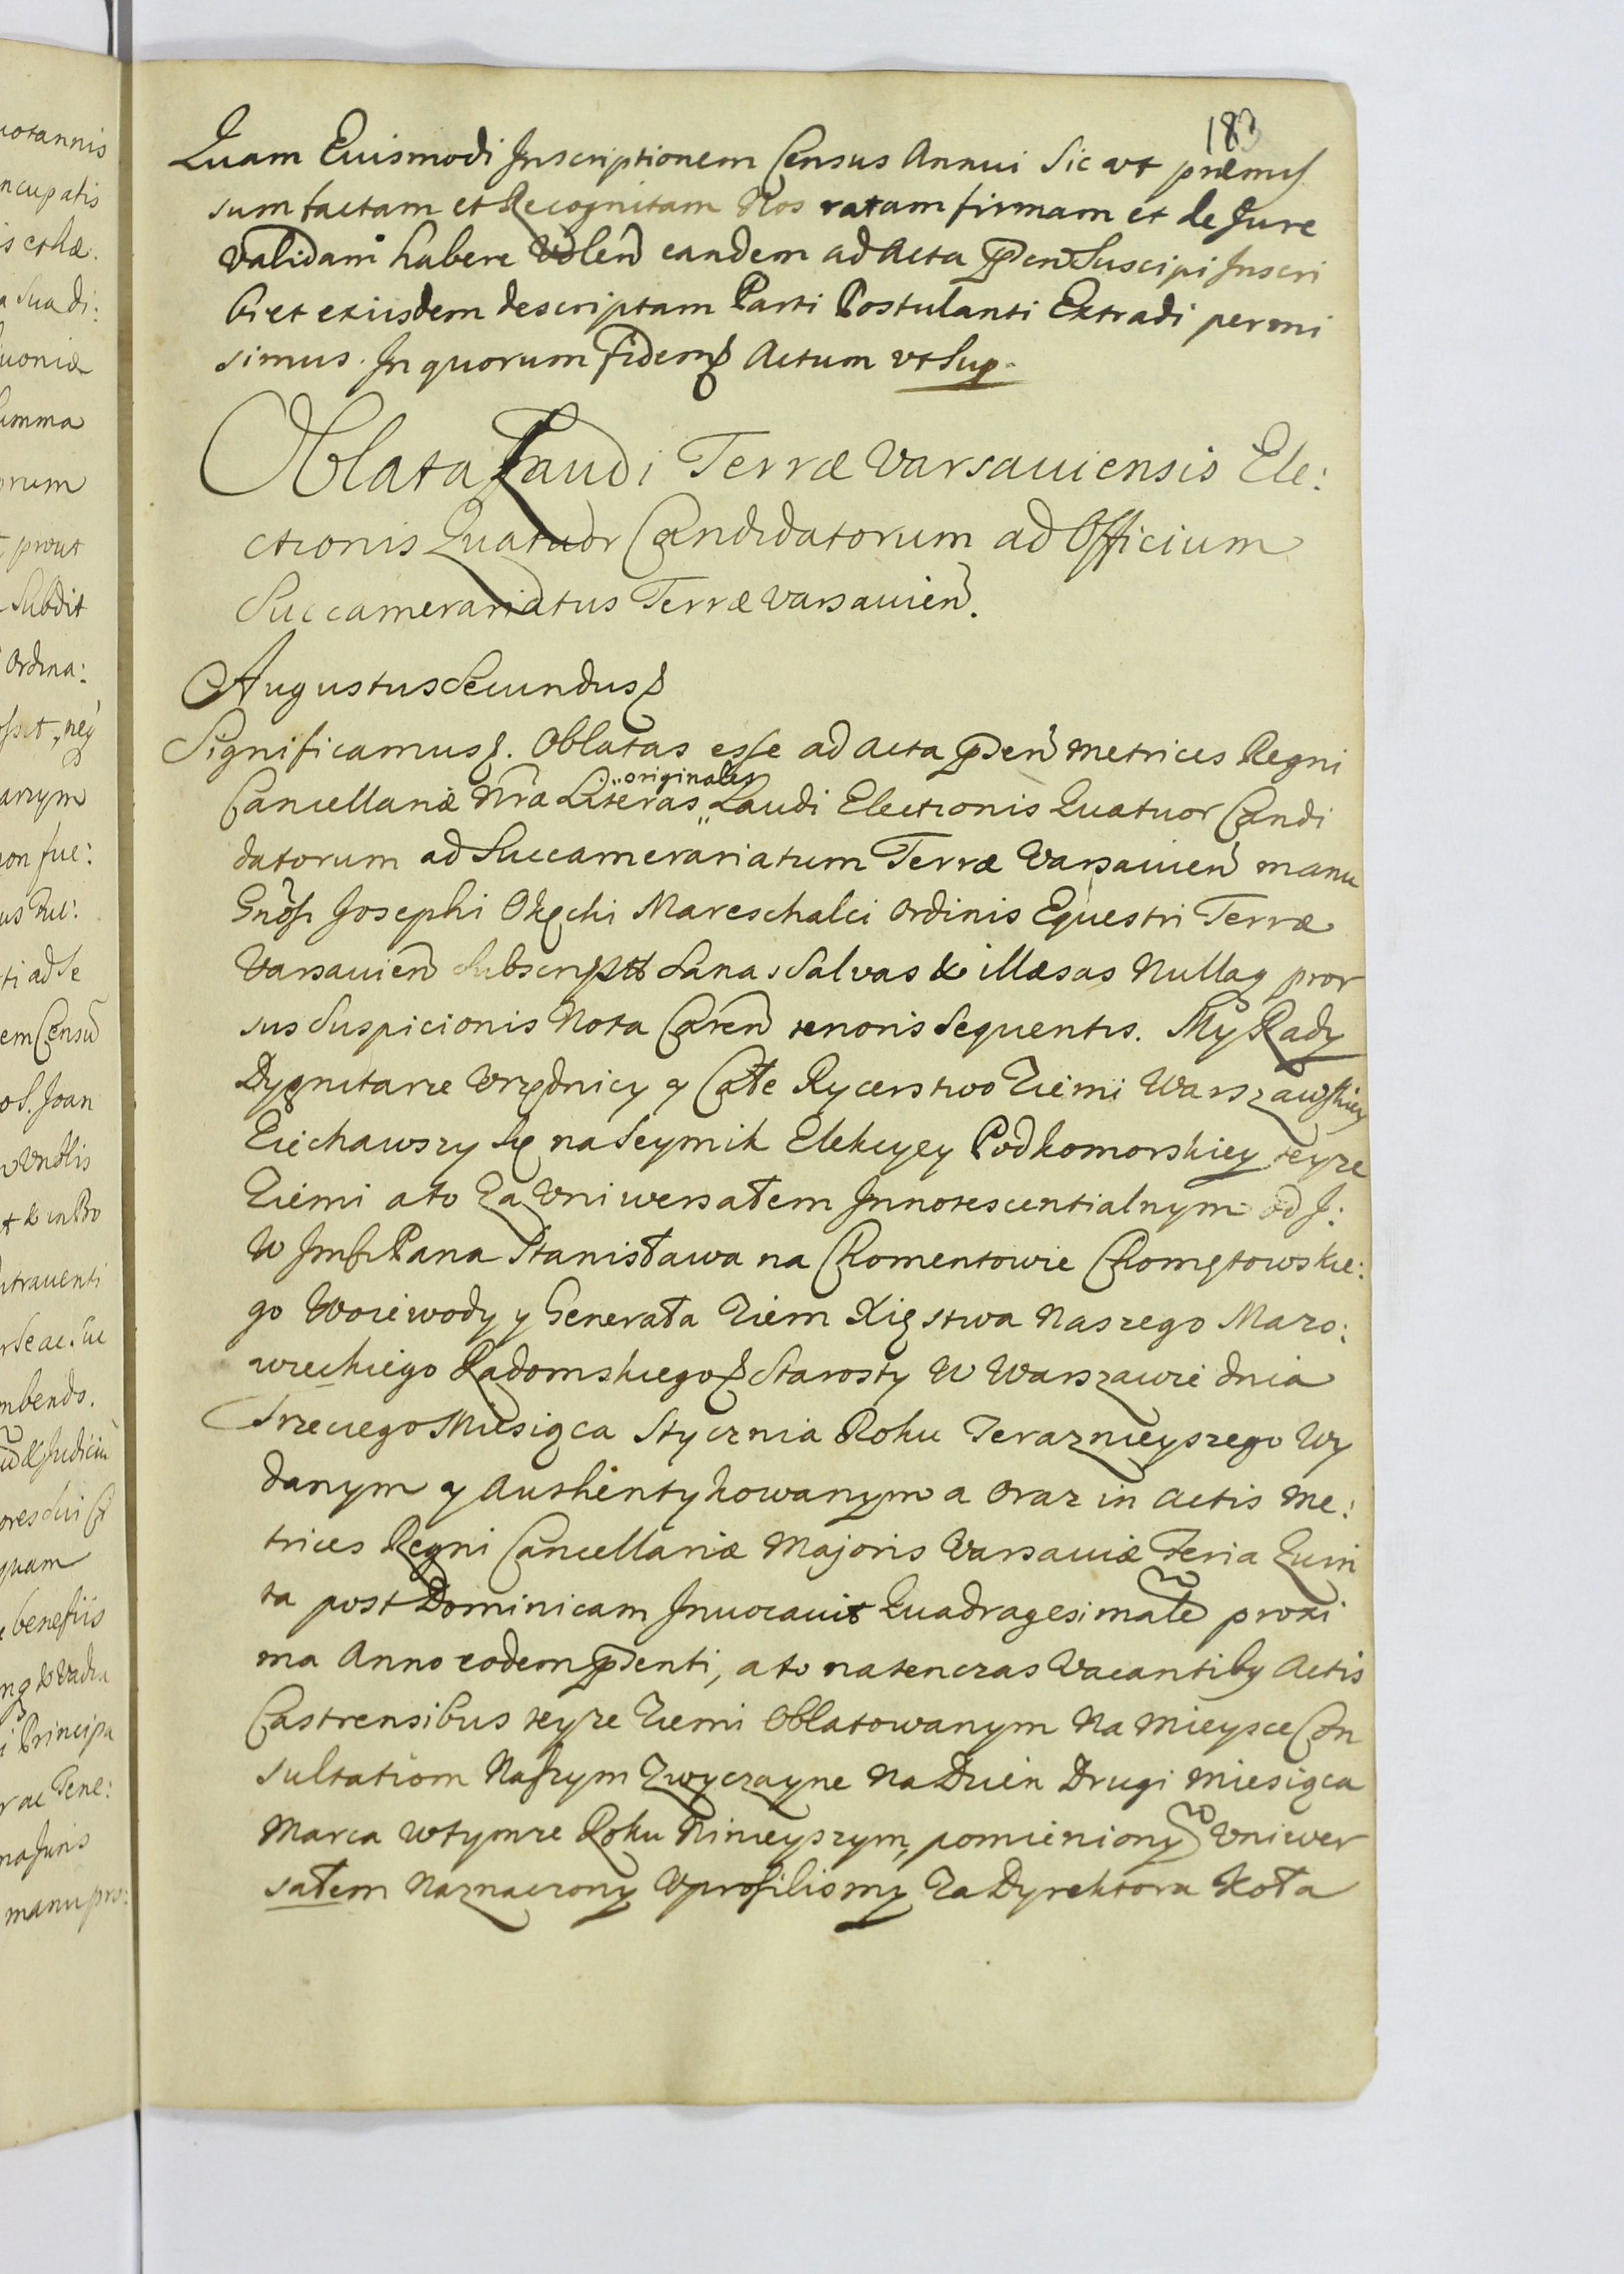 183
Quam Eiusmodi Inscriptionem Census Annui Sic ut præmis
sum factam et Recognitam Nos ratam firmam et de Jure
Validam habere Volen eandem ad Acta pñ Suscipi Inscri
bi et exiisdem descriptam Parti Postulanti Extradi permi
simus. In quorum fidem Actum ut Sup.
Oblata Laudi Terræ Varsaviensis Ele:
ctionis Quatuor Candidatorum ad Officium
Succamerariatus Terræ Varsavien.
Augustus Secundus
Significamus. Oblatas esse ad Acta pñ Metrices Regni
Cancellariæ Nræ Literas originales Laudi Electionis Quatuor Candi
datorum ad Succamerariatum Terræ Varsavien manu
Gnosi Josephi Okęcki Mareschalci Ordinis Equestri Terræ
Varsavien Subscript Sanas Salvas & illæsas Nullaq pror
sus Suspicionis Nota Caren tenoris Sequentis. My Rady
Dygnitarze Urzędnicy y Całe Rycerstwo Ziemi Warszawskiey
Ziechawszy Się na Seymik Elekcyey Podkomorskiey teyże
Ziemi a to Za Uniwersałem Innotescentialnym od J:
W Jmsci Pana Stanisława na Chomentowie Chomętowskie:
go Woiewody y Generała Ziem Xięstwa Naszego Mazo:
wieckiego Radomskiego Starosty W Warszawie dnia
Trzeciego Miesiąca Stycznia Roku Teraznieyszego Wy
danym y Authentykowanym a Oraz in Actis Me:
trices Regni Cancellariæ Majoris Varsaviæ Feria Quin
ta post Dominicam Invocavit Quadragesimale proxi
ma Anno eodem psenti, a to natenczas Vacantiby Actis
Castrensibus teyże Ziemi Oblatowanym Na Mieysce Con
sultatiom Naszym Zwyczayne Na Dzien Drugi Miesiąca
Marca w tymże Roku Ninieyszym, pomieniony Uniwer
sałem Naznaczony Uprosilismy Za Dyrektora Koła